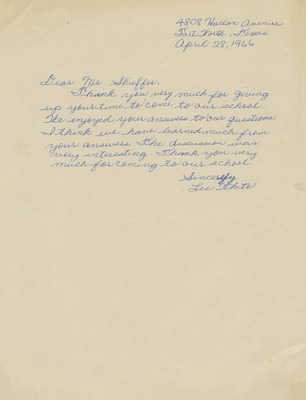 4808 Harlan Avenue
Fort Worth, Texas
April 28, 1966
Dear Mr. Sheffer,
Thank you very much for giving
up your time to come to our school
We enjoyed your answers to our questions
I think we have learned much from
your answers The discussion was
very interesting Thank you very
much for coming to our school
Sincerely
Lee White